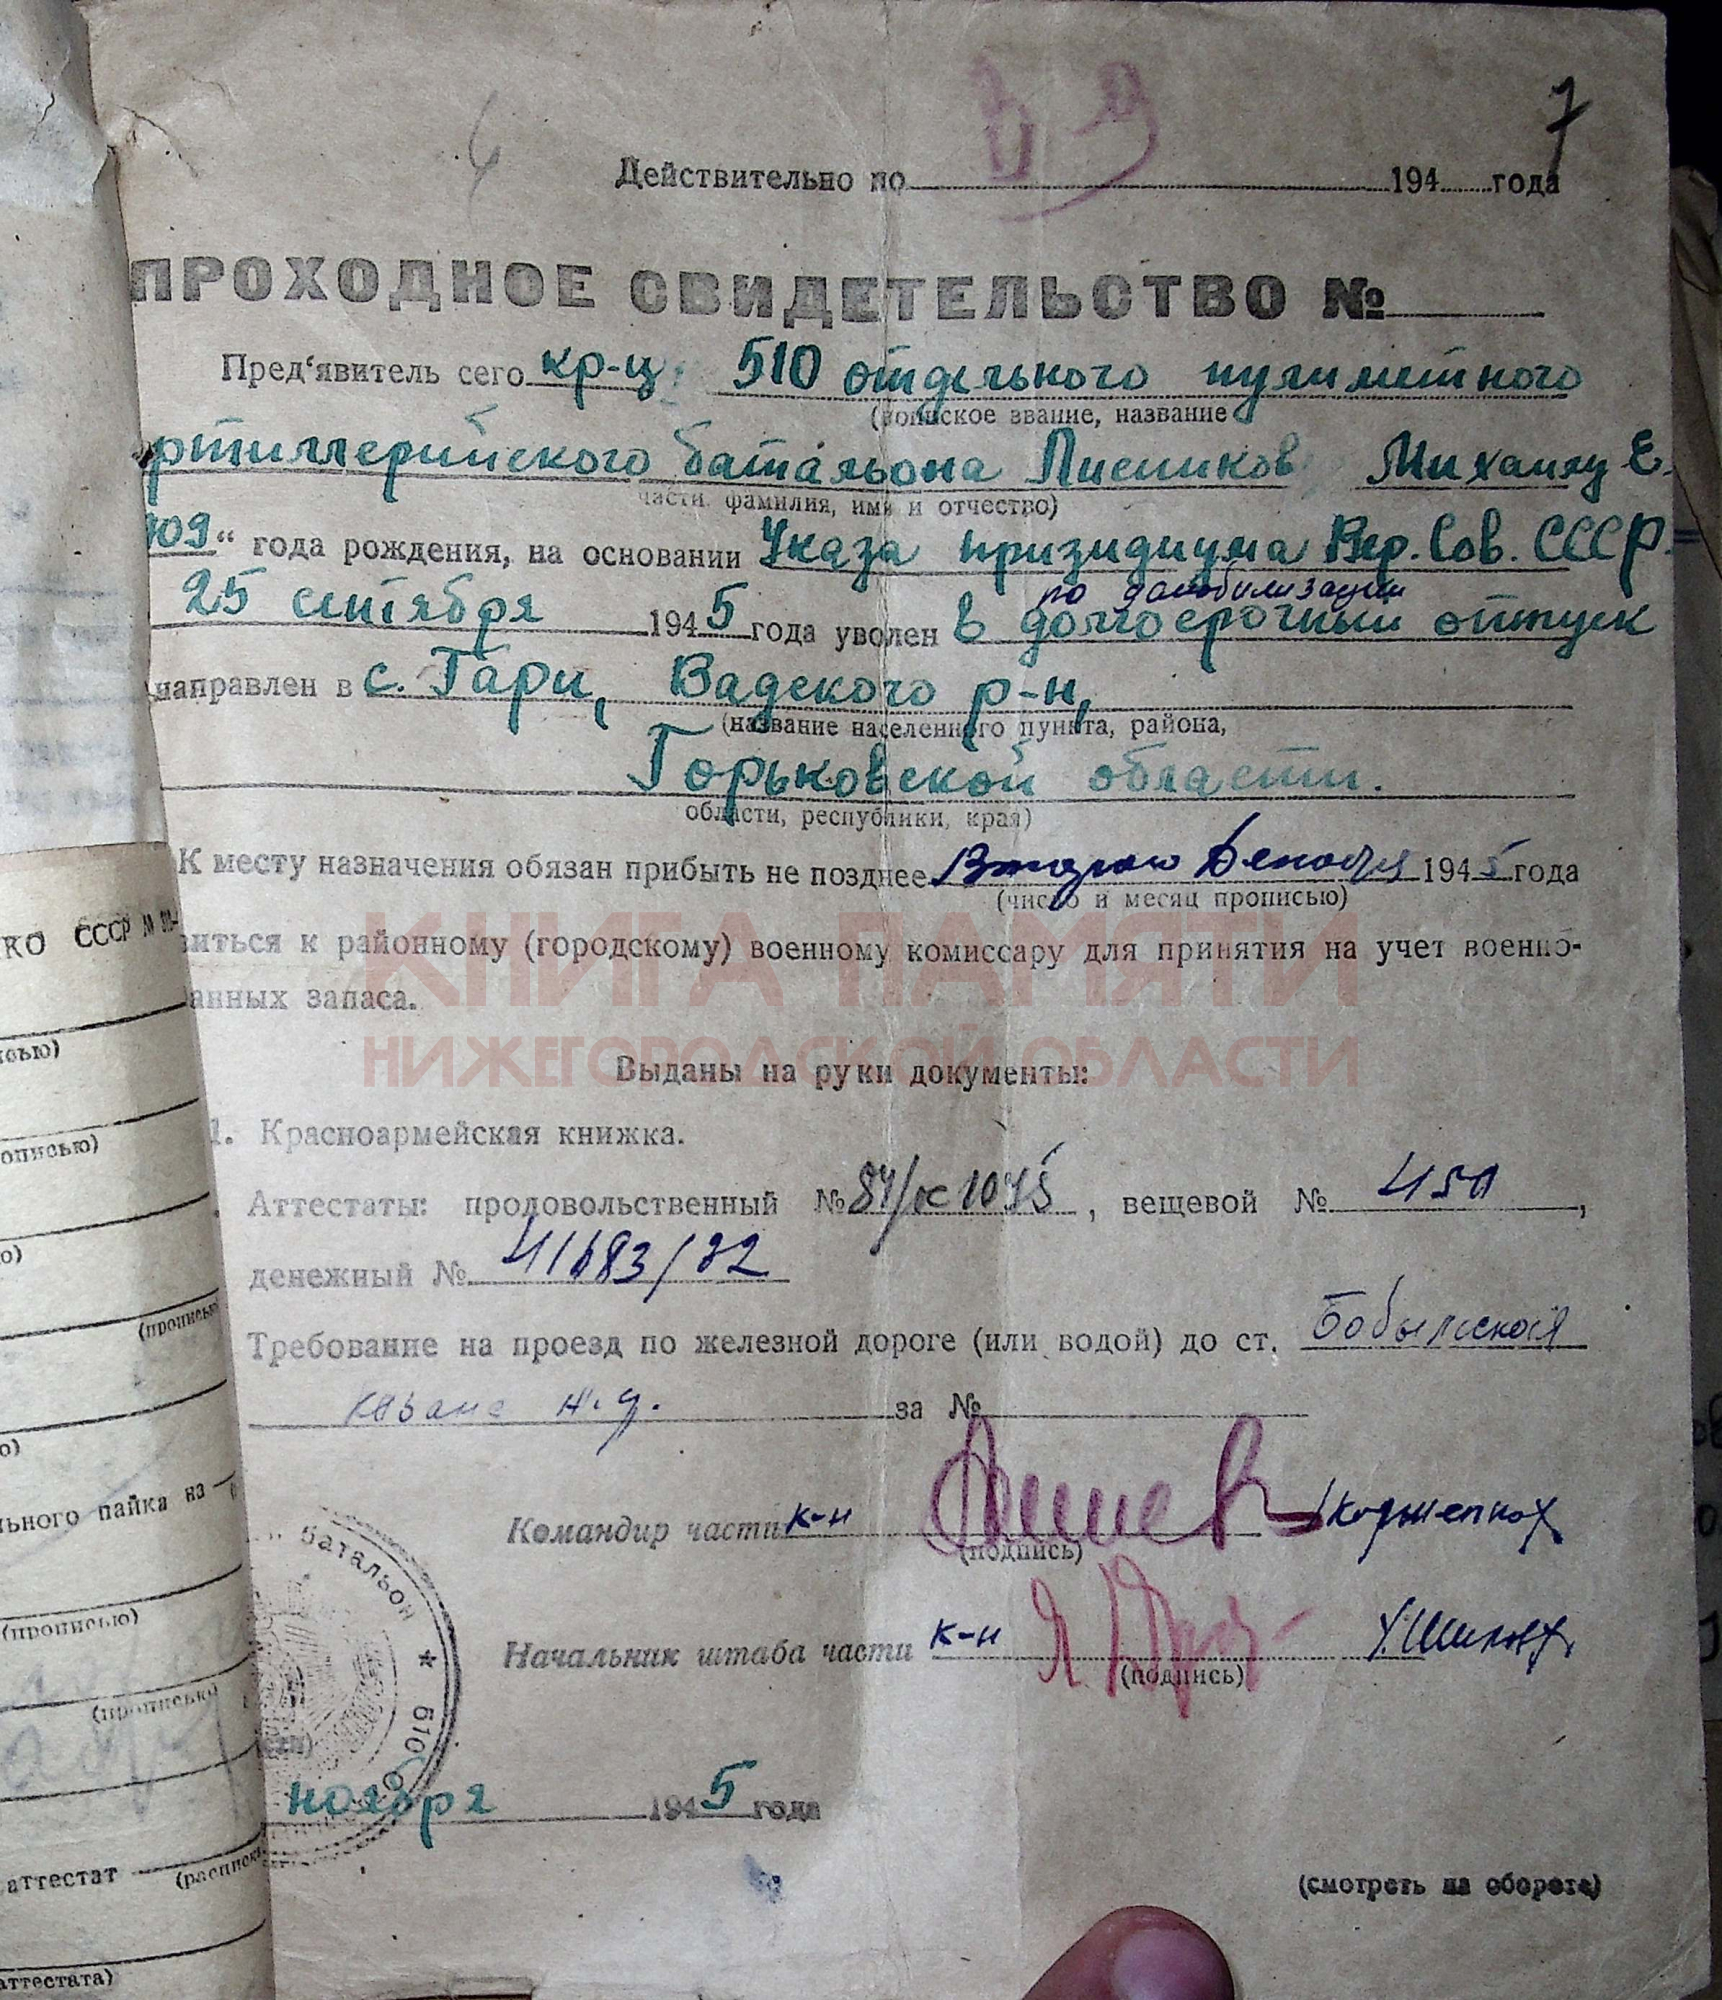 7
Действительно по 194 года
ПРОХОДНОЕ СВИДЕТЕЛЬСТВО №
Пред'явитель сего кр-ц 510 отдельного пулиметного
(воинское звание, название
ртиллерийского батальона Михаилу Е.
части, фамилия, имя и отчество)
09" года рождения, на основании Указа призидиума Вер. Сов. СССР.
по демобилизации
25 сентября 1945 года уволен в долгосрочный отпуск
направлен в с. Гари, Вадского р-н,
(название населенного пункта, района,
Горьковской области.
области, республики, края)
К месту назначения обязан прибыть не позднее Второго Декабря 1945 года
(число и месяц прописью)
КО СССР
виться к районному (городскому) военному комиссару для принятия на учет военно-
анных запаса.
КНИГА ПАМЯТИ
НИЖЕГОРОДСКОЙ ОБЛАСТИ
Выданы на руки документы:
1. Красноармейская книжка.
Аттестаты: продовольственный № , вещевой № 450,
денежный №
Требование на проезд по железной дороге (или водой) до ст. Бобыльская
ж.д. за №
Командир части к-н
(подпись)
Начальник штаба части к-н
(подпись)
батальон * 510
ноября 1945 года
(смотреть на обороте)
писью)
описью)
(прописью
льного пайка на
(прописью)
(прописью)
аттестат
(расписка
аттестата)